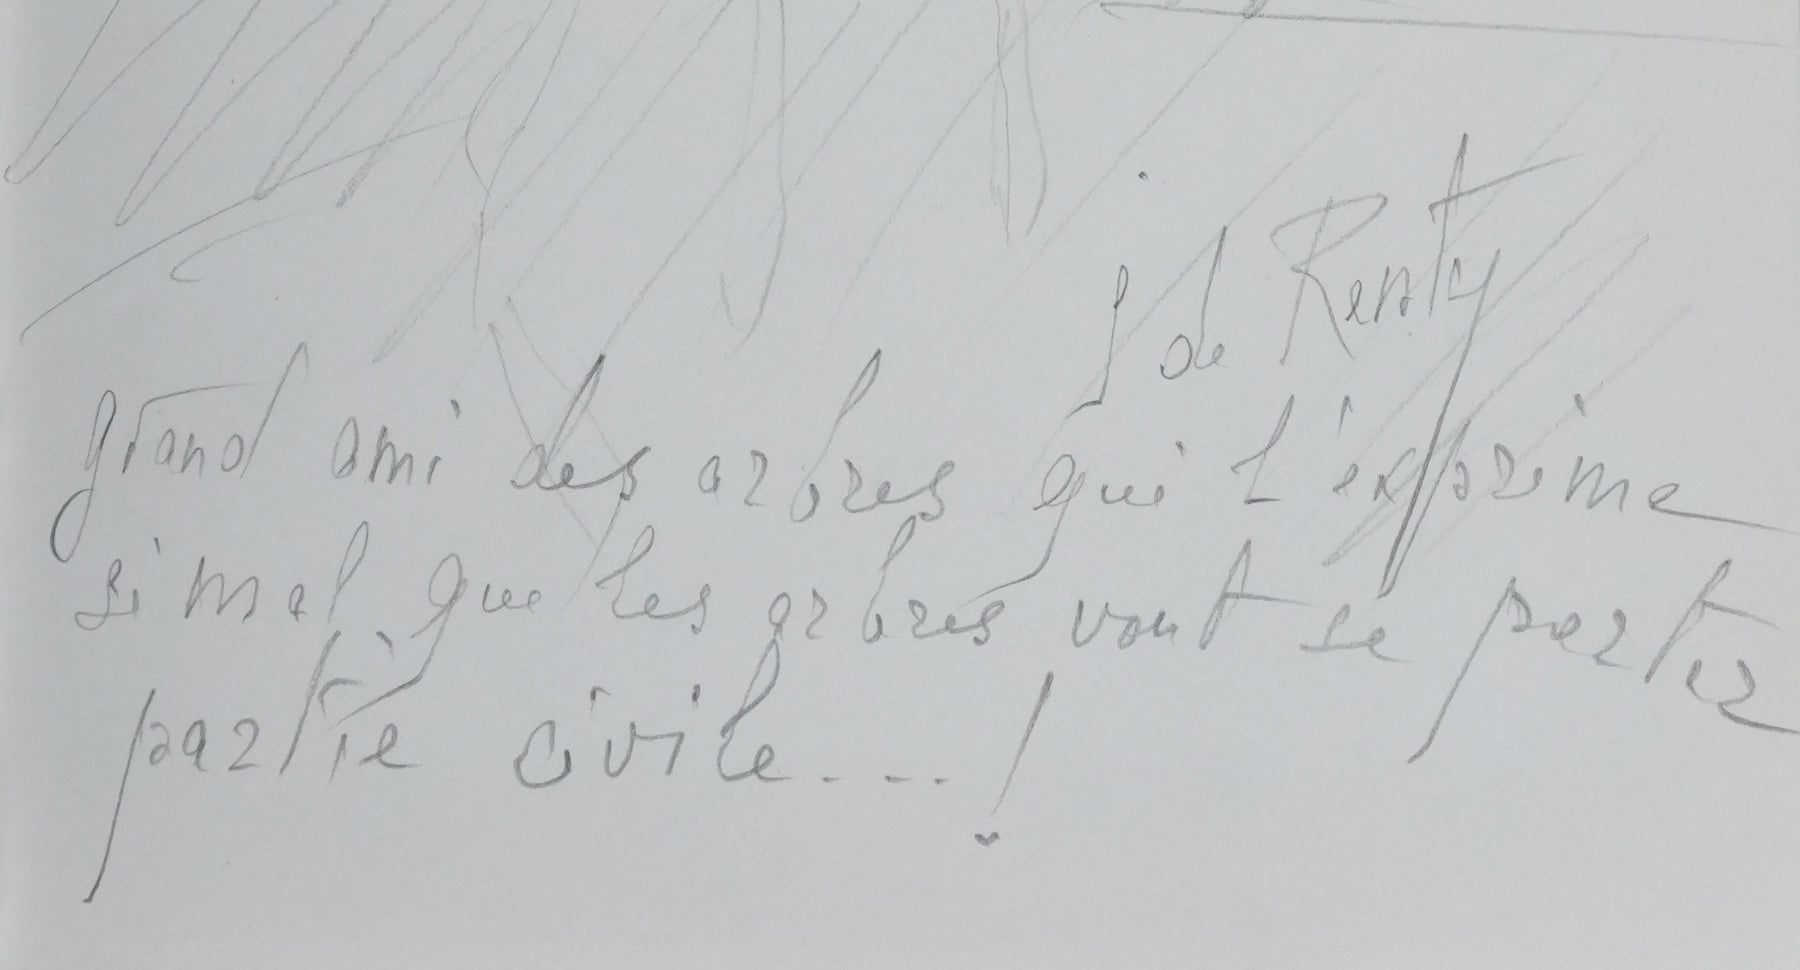 J de Renty
grand ami des arbres qui l'exprime
si mal que les arbres vont se porter
partie civile....!